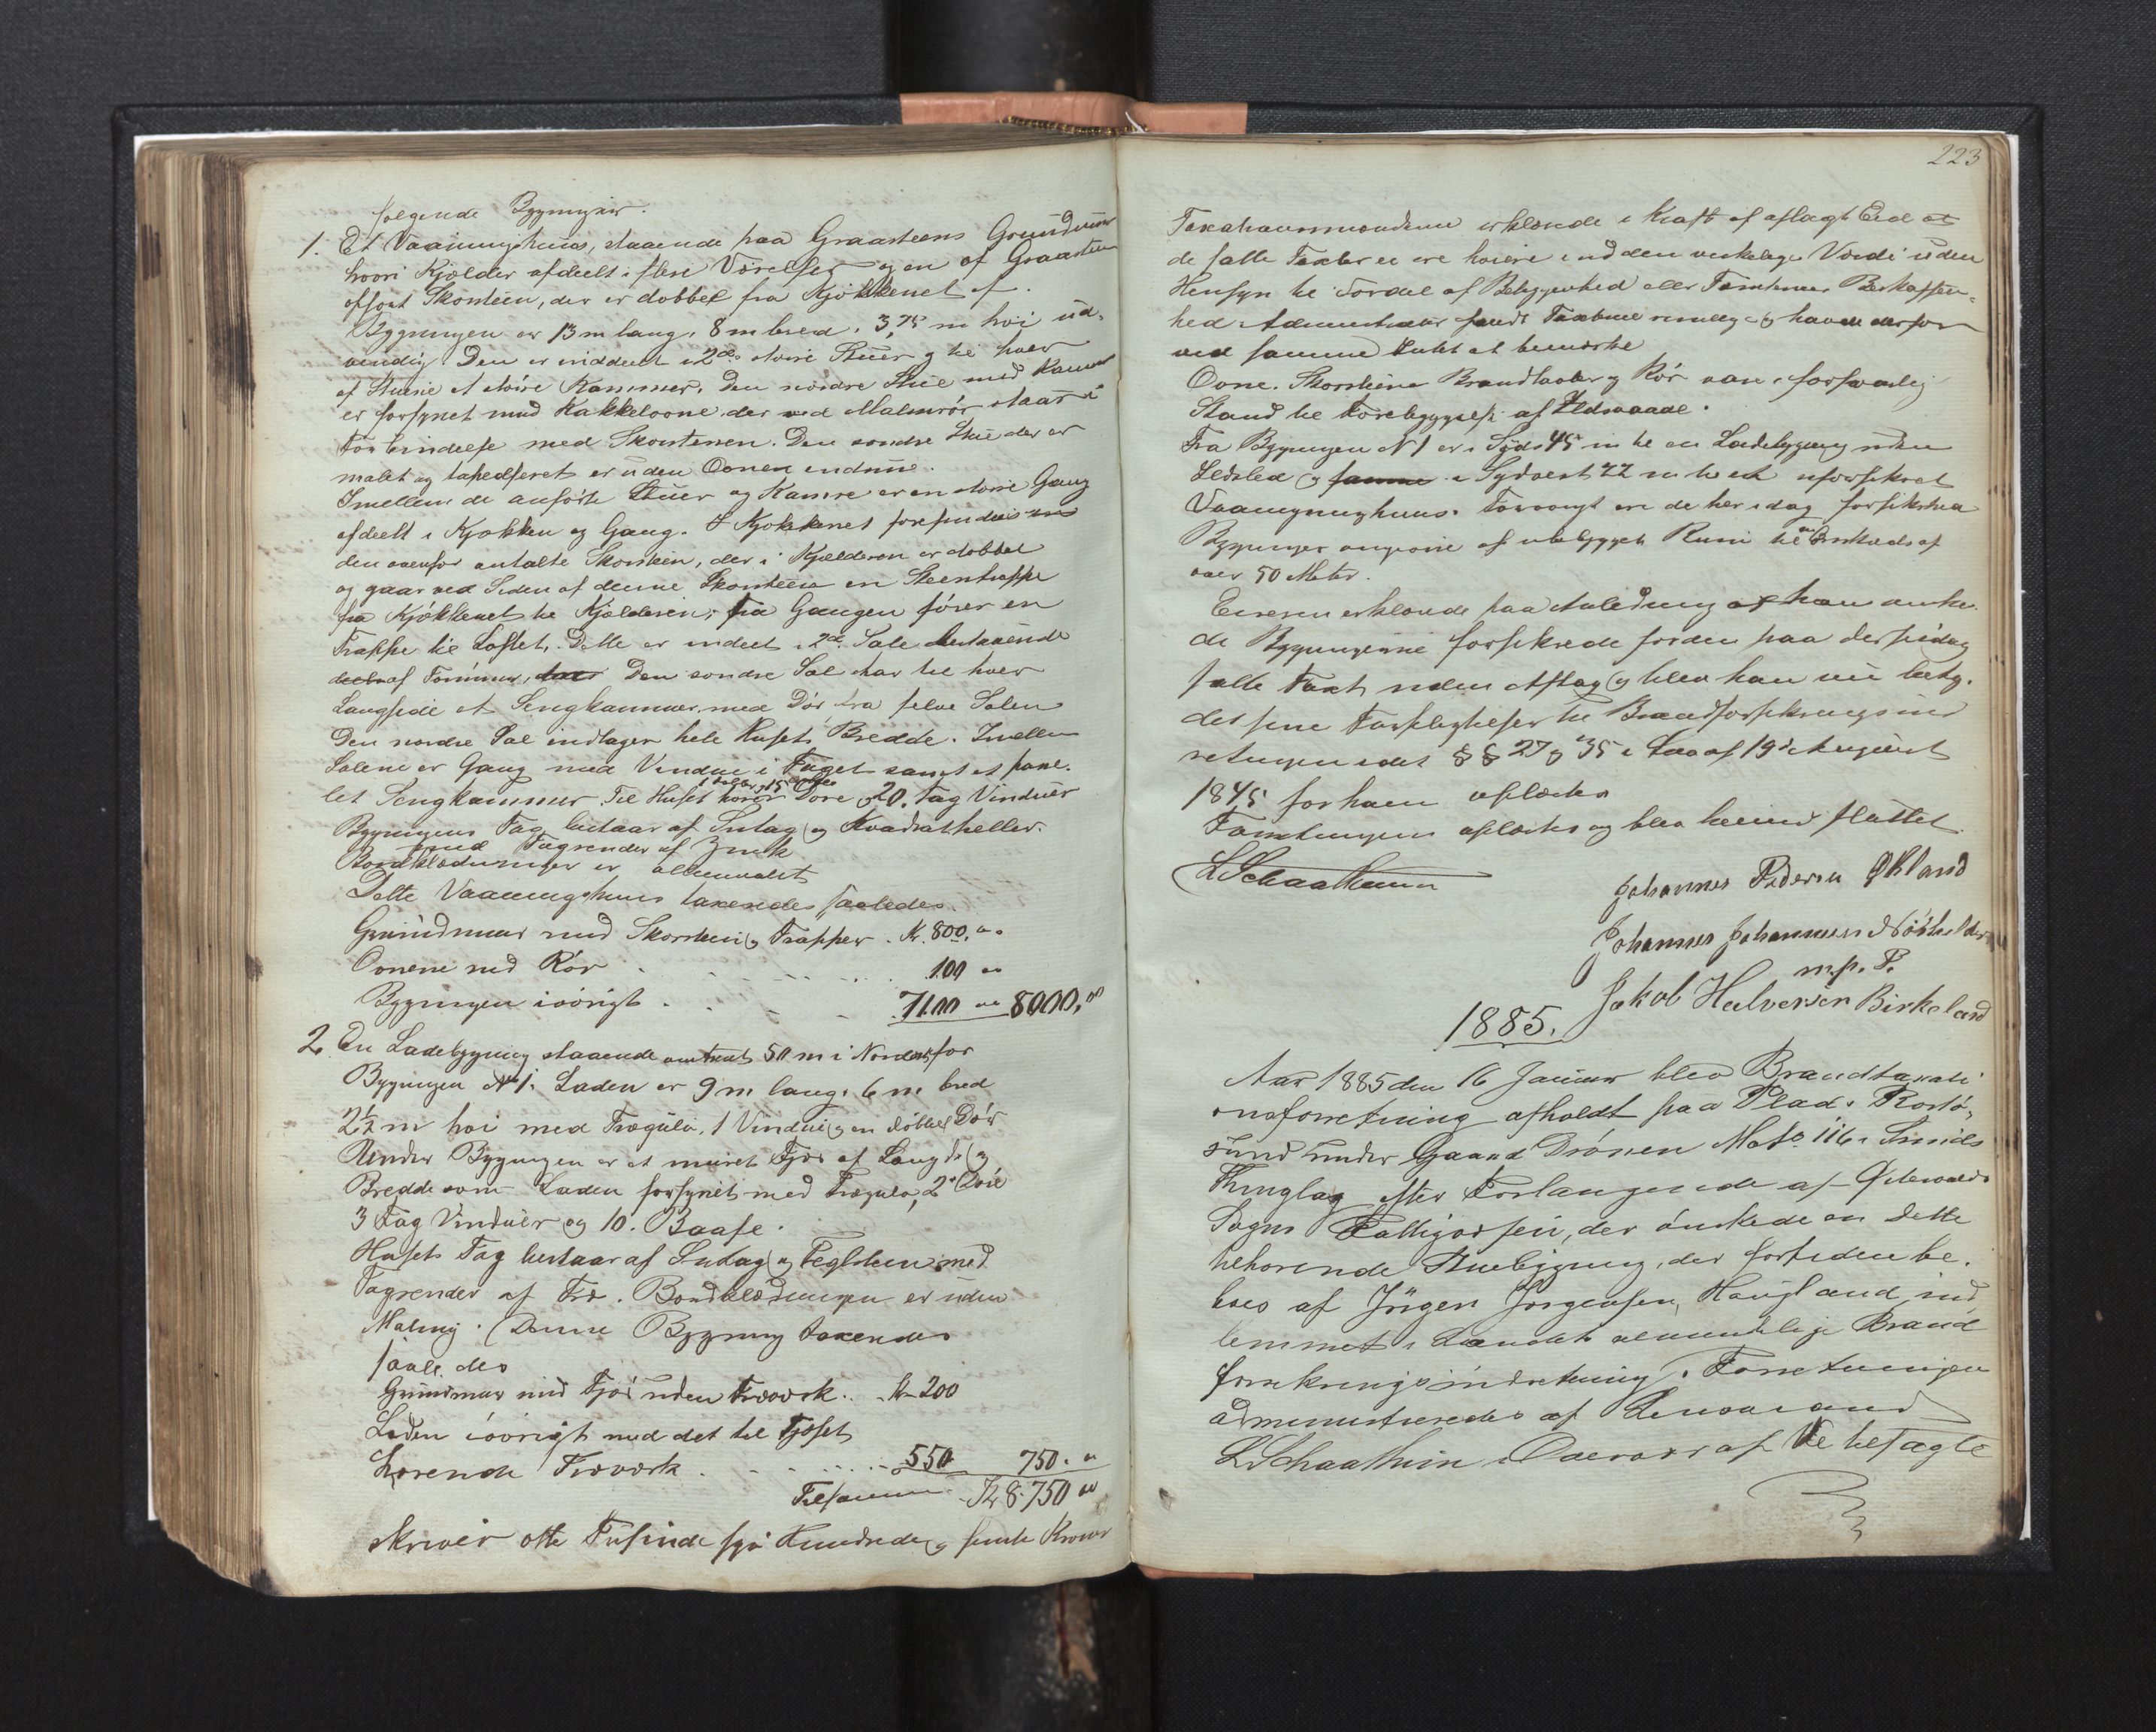 følgende Bygninger.
1. Et Vaaningshuus, staaende paa Graasteens Grundmuur
hvori Kjælder afdeelt i flere Værelser og en af Graasteen
opført Skorsteen, der er dobbel fra Kjøkkenet af.
Bygningen er 13 m lang, 8 m bred, 3,75 m høi ud-
vendig. Den er inddeelt i 2de større Stuer og til hver
af Stuerne et større Kammer. Den nordre Stue med Kammer
er forsynet med Kakkelovne, der ved Malmrør staar i
Forbindelse med Skorstenen. Den søndre Stue der er
malet og tapedseret er uden Ovnen endnu.
Imellem de anførte Stuer og Kamre er en større Gang
afdeelt i Kjøkken og Gang. I Kjøkkenet forefindes
den ovenfor antalte Skorsteen, der i Kjælderen er dobbel
og gaar ved Siden af denne Skorsteen en Steentrappe
fra Kjøkkenet til Kjælderen; fra Gangen fører en
Trappe til Loftet. Dette er indeelt i 2de Sale bestaaende
af Tømmer, Den søndre Sal har til hver
Langside et Sengkammer med Dør fra selve Salen
Den nordre Sal indtager hele Husets Bredde. Imellem
Salene er Gang med Vindue i Taget samt et pane-
let Sengkammer. Til Huset hører 1 dobbel og 15 enkelte Døre og 20. Fag Vinduer
Bygningens Tag bestaar af Sutag og Kvadratheller.
med Tagrender af Zink
Bordklædninger er oliemalet
Dette Vaaningshuus taxeredes saaledes.
Grundmuur med Skorsteen og Trapper . Kr. 800. "
Ovnene med Rør . . . . 100 "
Bygningen iøvrigt . . . 7100 " 8000. "
2. En Ladebygning staaende omtrent 50 m i Norden for
Bygningen No 1. Laden er 9 m lang, 6 m bred
2½ m høi med Trægulv, 1 Vindue og en dobbel Dør
Under Bygningen er et muret Fjøs af Længde og
Bredde som Laden forsynet med Trægulv, 2 Døre
3 Fag Vinduer og 10. Baase.
Husets Tag bestaar af Sutag og Teglsteen med
Tagrender af Træ. Bordklædningen er uden
Maling. Denne Bygning taxeredes
saaledes
Grundmuur med Fjøs uden Træværk . . Kr 200
Laden iøvrigt med det til Fjøset
hørende Træværk . . . . 550 750. "
Tilsammen Kr 8.750 "
skriver otte Tusinde syv Hundrede og femti Kroner
223
Taxationsmændene erklærede i Kraft af aflagt Eed at
de satte Taxter ei ere høiere end den virkelige Værdi uden
Hensyn til Fordel af Beliggenhed eller Tomternes Beskaffen-
hed. Administrator fandt Taxterne rimelige og havde derfor
ved samme Intet at bemærke
Ovne. Skorstene Brandtavler og Rør vare i forsvarlig
Stand til Forebyggelse af Ildsvaade.
Fra Bygningen No 1 er i Syd 45 m til en Ladebygning uden
Ildsted og i Sydvest 22 m til et uforsikret
Vaaningshuus. Forøvrigt ere de her i dag forsikrede
Bygninger omgivne af ubebygget Rum til en Omkreds af
over 50 Meter.
Eieren erklærede paa Anledning at han ønske-
de Bygningerne forsikrede for den paa der i dag
satte Taxt uden Afslag og blev han nu bety-
det sine Forpligtelser til Brandforsikringsind
retningen idet §§ 27 og 35 i Lov af 19de August
1845 for ham oplæstes
Forretningen oplæstes og blev hermed sluttet.
LSchaathun
Johannes Pedersen Økland
Johannes Johannesen
m. p. P.
Jakob Halversen Birkeland
1885.
Aar 1885 den 16 Januar blev Brandtaxati-
onsforretning afholdt paa Plads
sund under Gaard Drønen Mats No 116 i
Thinglag efter Forlangende af
Sogns Fattigvæsen, der ønskede en dette
tilhørende Stuebygning, der for tiden be-
boes af Jørgen Jørgensen, Haugland, ind
lemmet i Landets almindelige Brand
forsikringsindretning. Forretningen
administreredes af Lensmand
LSchaathun i Overvær af de befagte